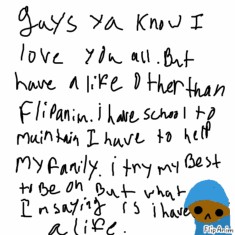 guys ya know I
love you all. But
have a life Other than
Flipanim. i have school to
maintain I have to help
My family. i try my Best
to Be on. But what
I'm saying is i have
a life.
FlipAnim